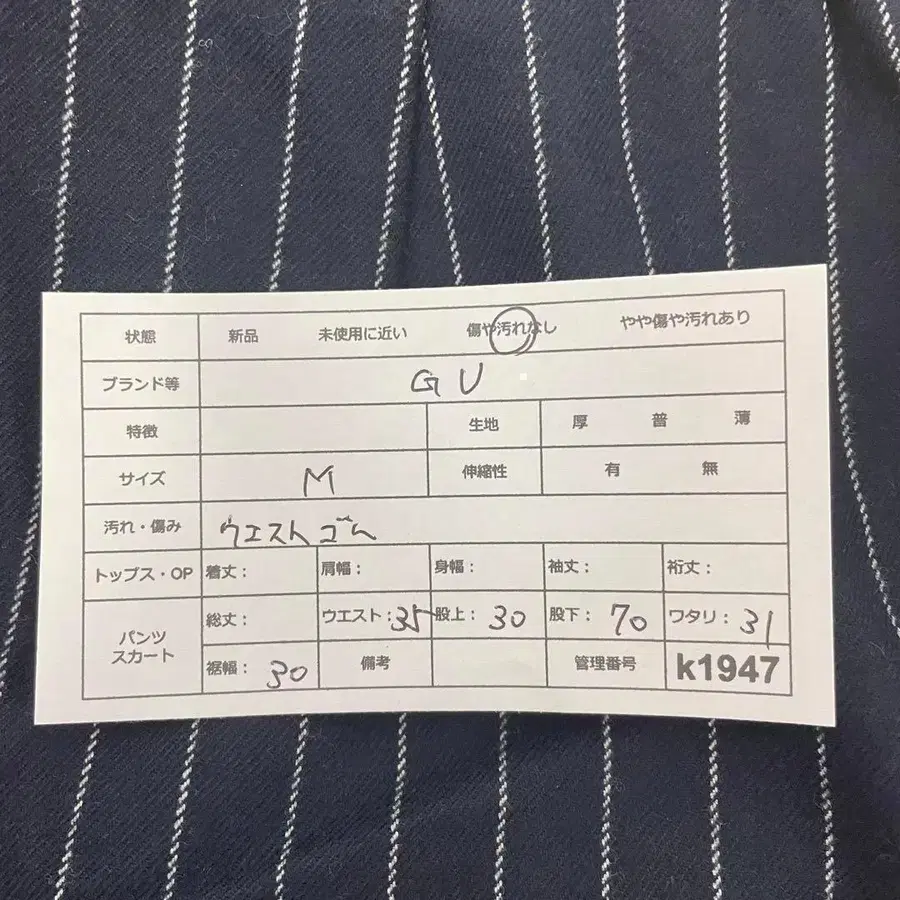 状態 新品 未使用に近い 傷や汚れなし やや傷や汚れあり
ブランド等 GU
特徴 生地 厚 普 薄
サイズ M 伸縮性 有 無
汚れ・傷み ウエストゴム
トップス・OP 着丈： 肩幅： 身幅： 袖丈： 裄丈：
パンツ スカート 総丈： ウエスト：35 股上：30 股下：70 ワタリ：31
裾幅：30 備考 管理番号 k1947